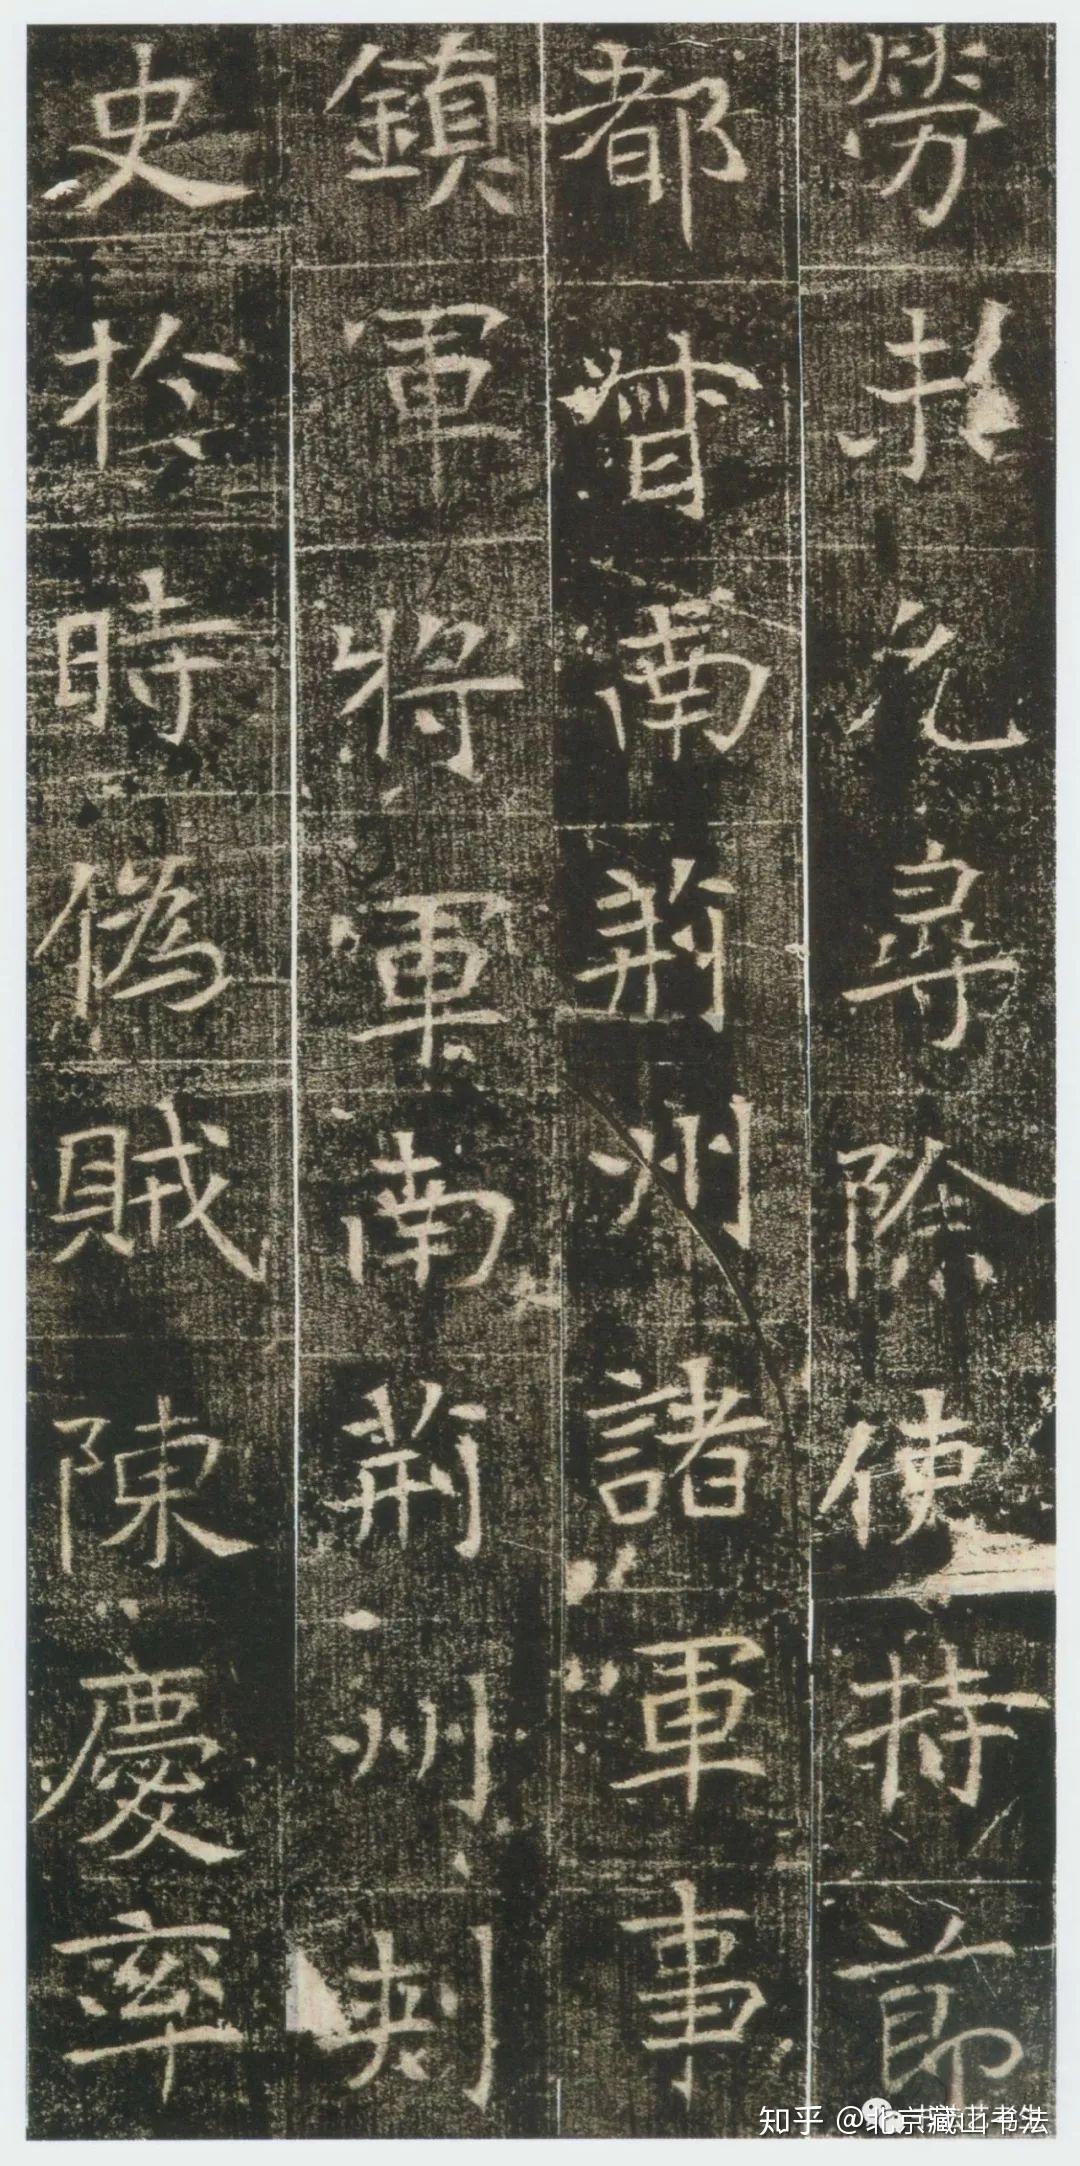 勞允尋除使持節
都督南荊州諸軍事
鎮軍將軍南荊州刾
史於時偽賊陳慶率
知乎 @北京藏山书法